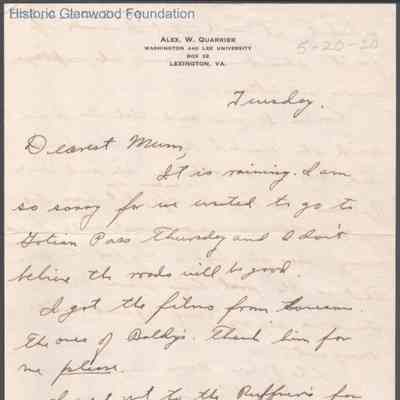 Historic Glenwood Foundation
ALEX. W. QUARRIER
WASHINGTON AND LEE UNIVERSITY
BOX 52
LEXINGTON, VA.
5-20-20
Tuesday.
Dearest Mum,
It is raining. I am
so sorry for we wanted to go to
Goshen Pass Thursday and I don't
believe the roads will be good.
I got the films from
The ones of Daddy's. Thank him for
me please.
to the Ruffner's for